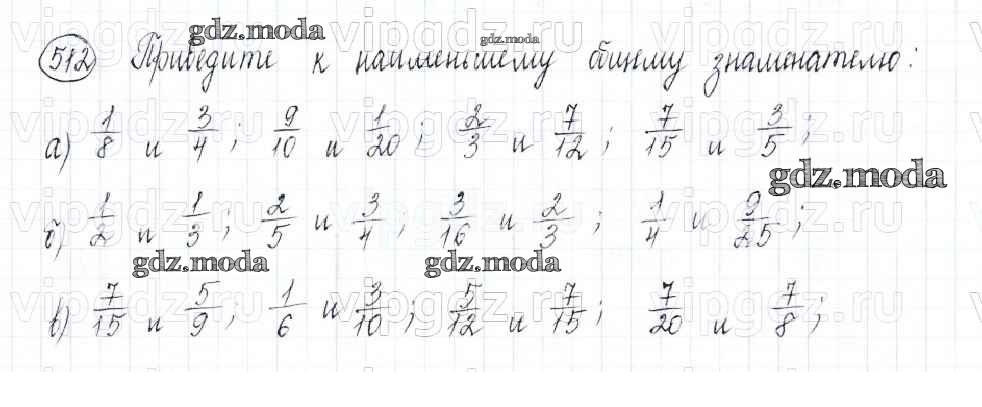 gdz.moda
gdz.moda
512 Приведите к наименьшему общему знаменателю:
а) 1/8 и 3/4; 9/10 и 1/20; 2/3 и 7/12; 7/15 и 3/5;
gdz.moda
б) 1/2 и 1/3; 2/5 и 3/4; 3/16 и 2/3; 1/4 и 9/25;
gdz.moda
gdz.moda
в) 7/15 и 5/9; 1/6 и 3/10; 5/12 и 7/15; 7/20 и 7/8;